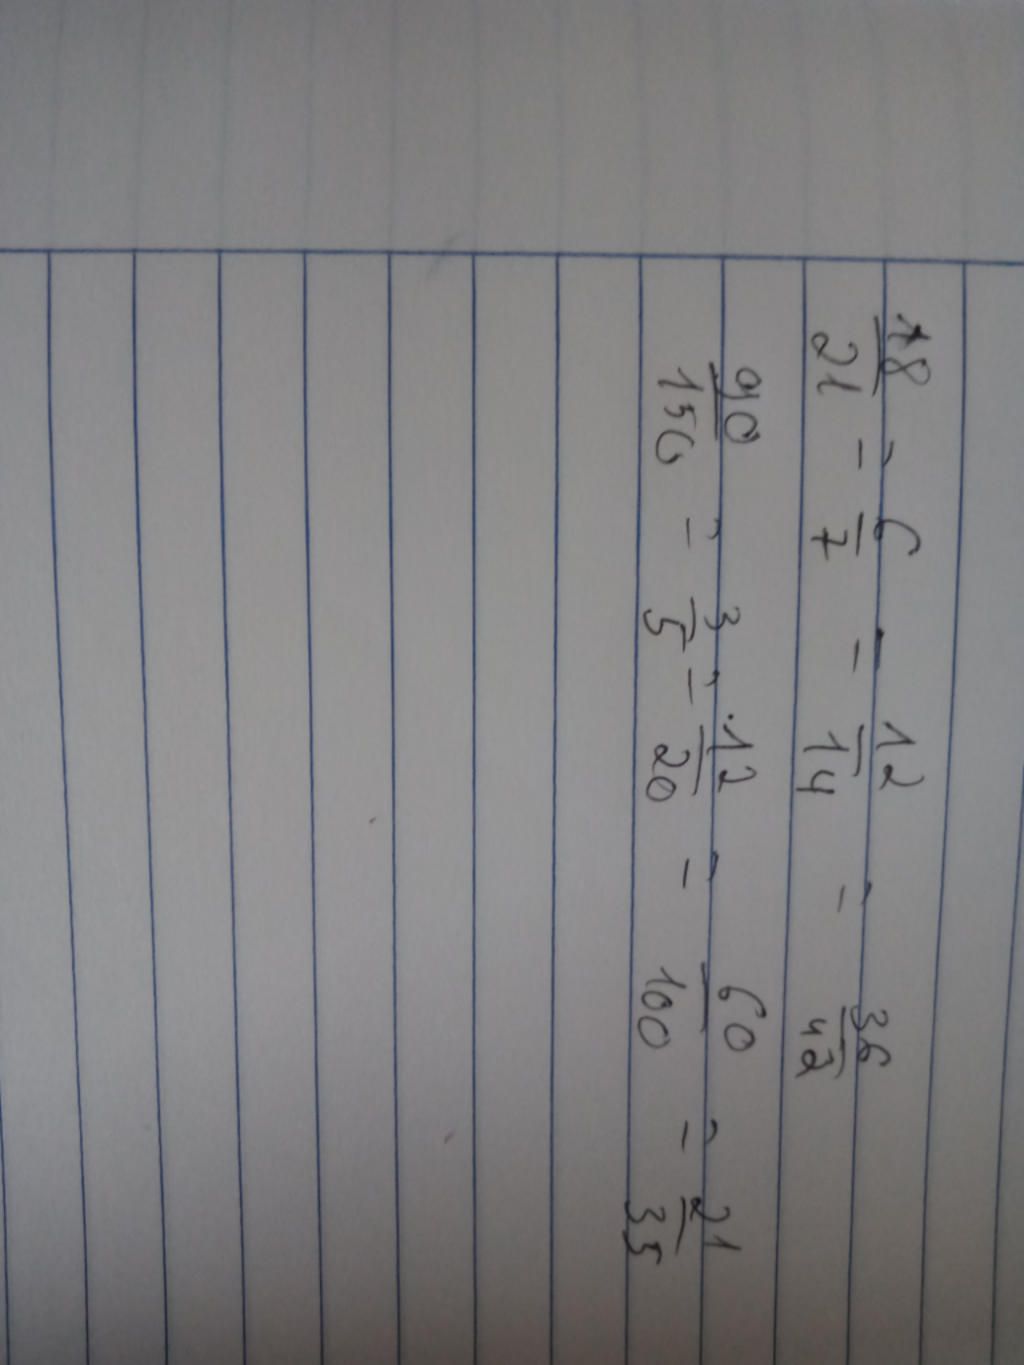 18/21 = 6/7 = 12/14 = 36/42
90/150 = 3/5 = 12/20 = 60/100 = 21/35